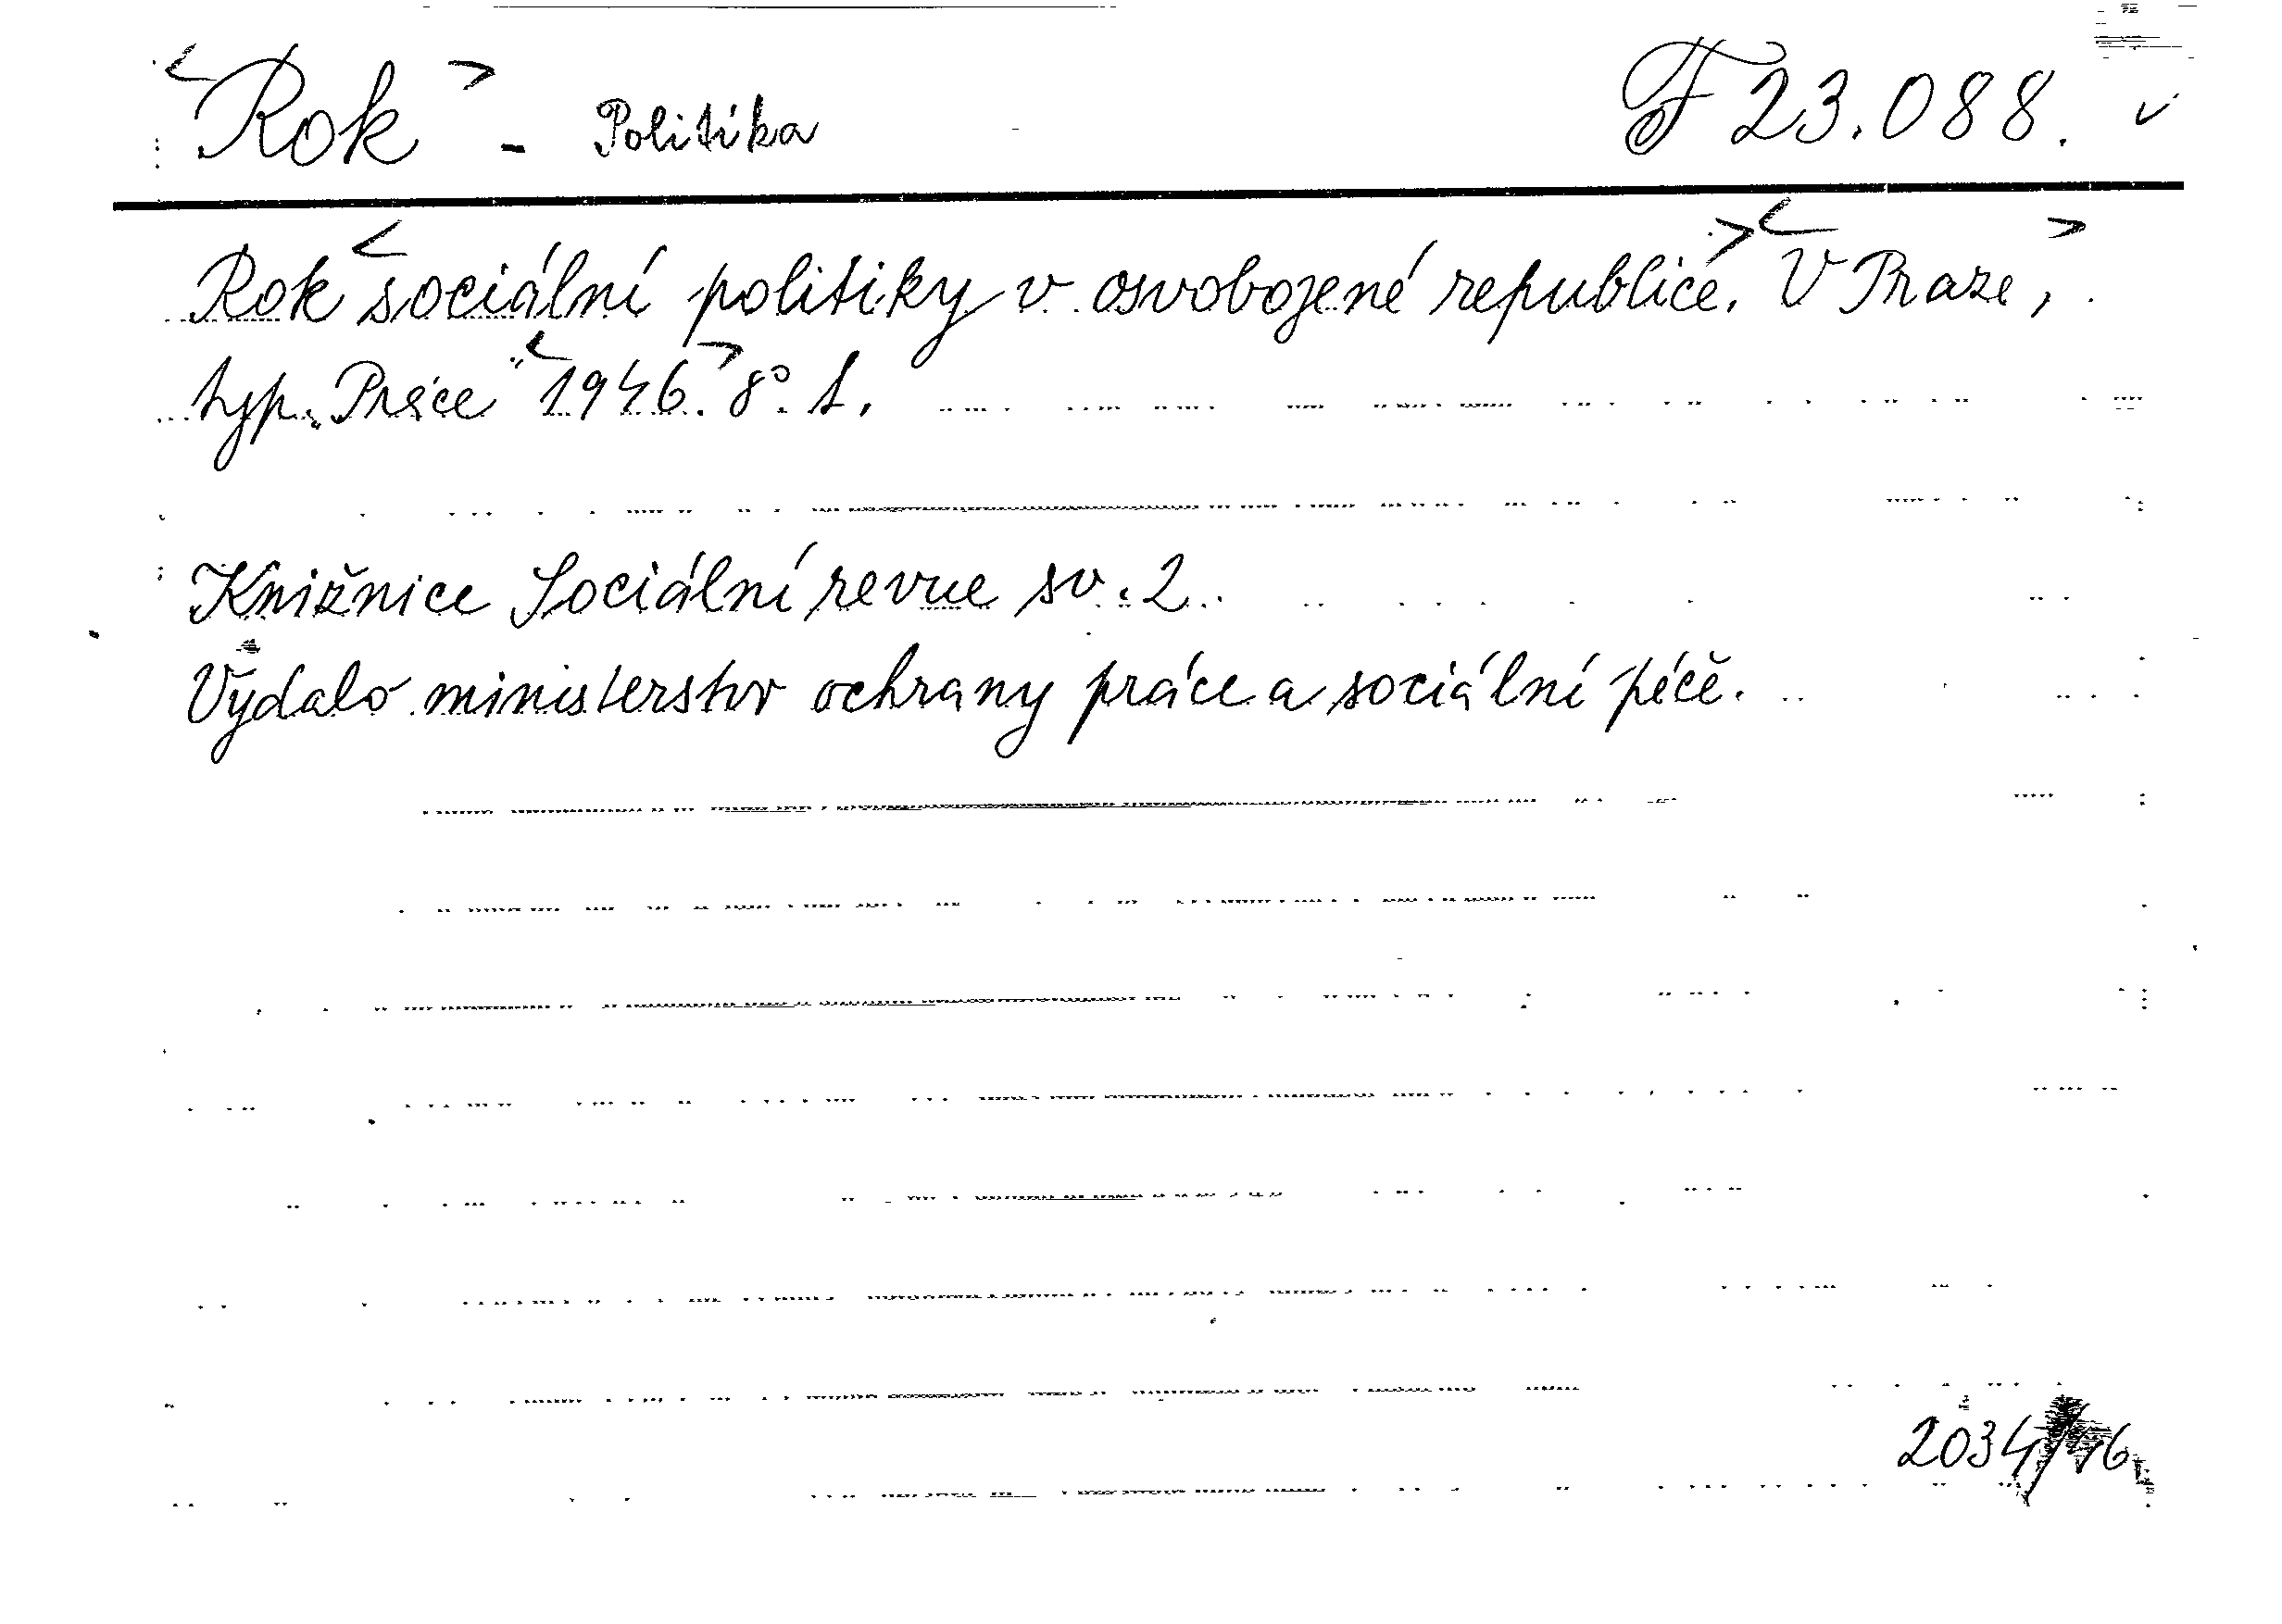 <Rok> - Politika F 23.088. ✓
Rok <sociální politiky v osvobozené republice.> <V Praze,>
typ. Práce <1946.> 8°. 1.
Knižnice Sociální revue sv. 2.
Vydalo ministerstvo ochrany práce a sociální péče.
2034/46